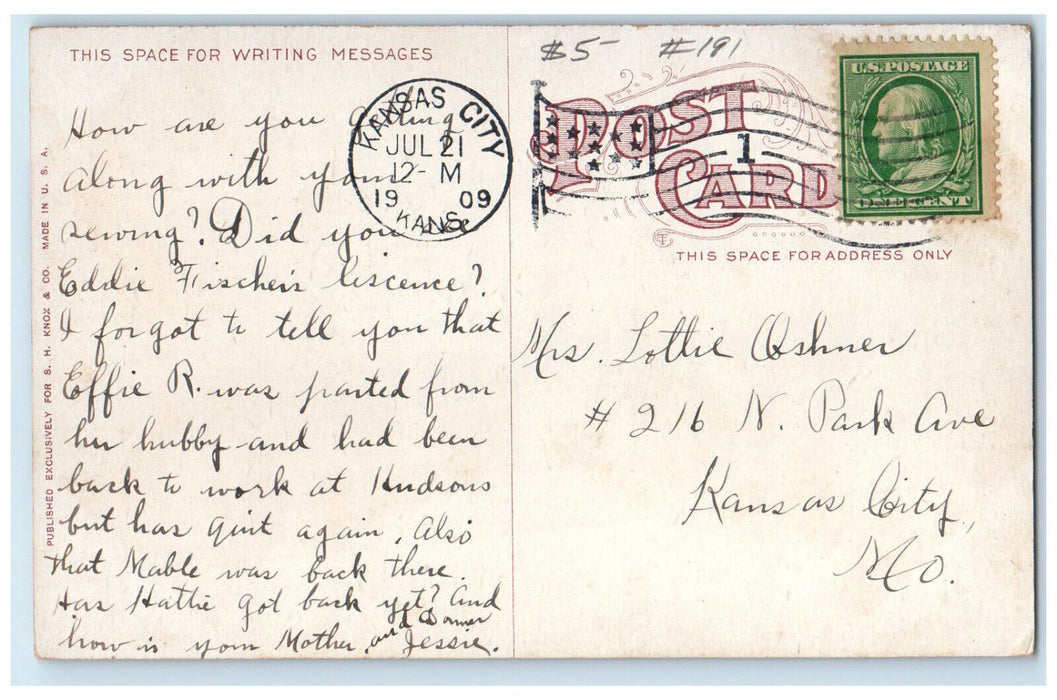 THIS SPACE FOR WRITING MESSAGES
How are you getting
along with your
sewing? Did you see
Eddie Fischer's liscence?
I forgot to tell you that
Effie R. was parted from
her hubby and had been
back to work at Hudsons
but has quit again, Also
that Mable was back there.
Has Hattie got back yet? And
how is your Mother, and
Jessie.
PUBLISHED EXCLUSIVELY FOR S. H. KNOX & CO. MADE IN U. S. A.
KANSAS CITY
JUL 21
12- M
19 09
KANS.
$5- #191
POST CARD
1
U.S. POSTAGE
ONE CENT
THIS SPACE FOR ADDRESS ONLY
Mrs. Lottie Oshner
# 216 N. Park Ave
Kansas City,
Mo.